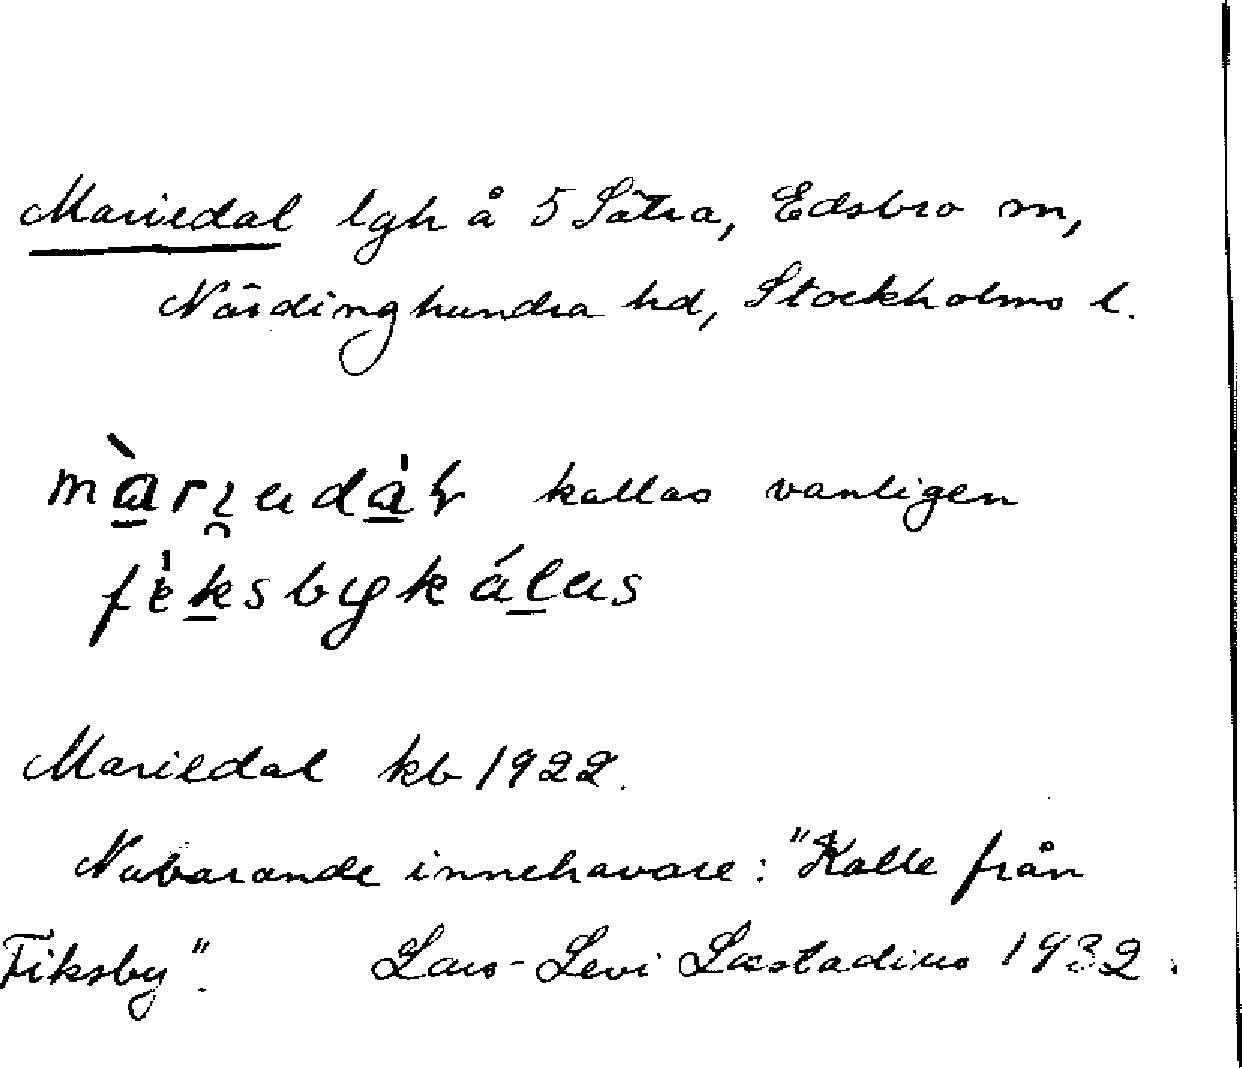 Mariedal lgh å 5 Sätra, Edsbro sn,
Närdinghundra hd, Stockholms l.
kallas vanligen
Mariedal kb 1922.
Nuvarande innehavare: "Kalle från
Fiksby". Lars-Levi Læstadius 1932.